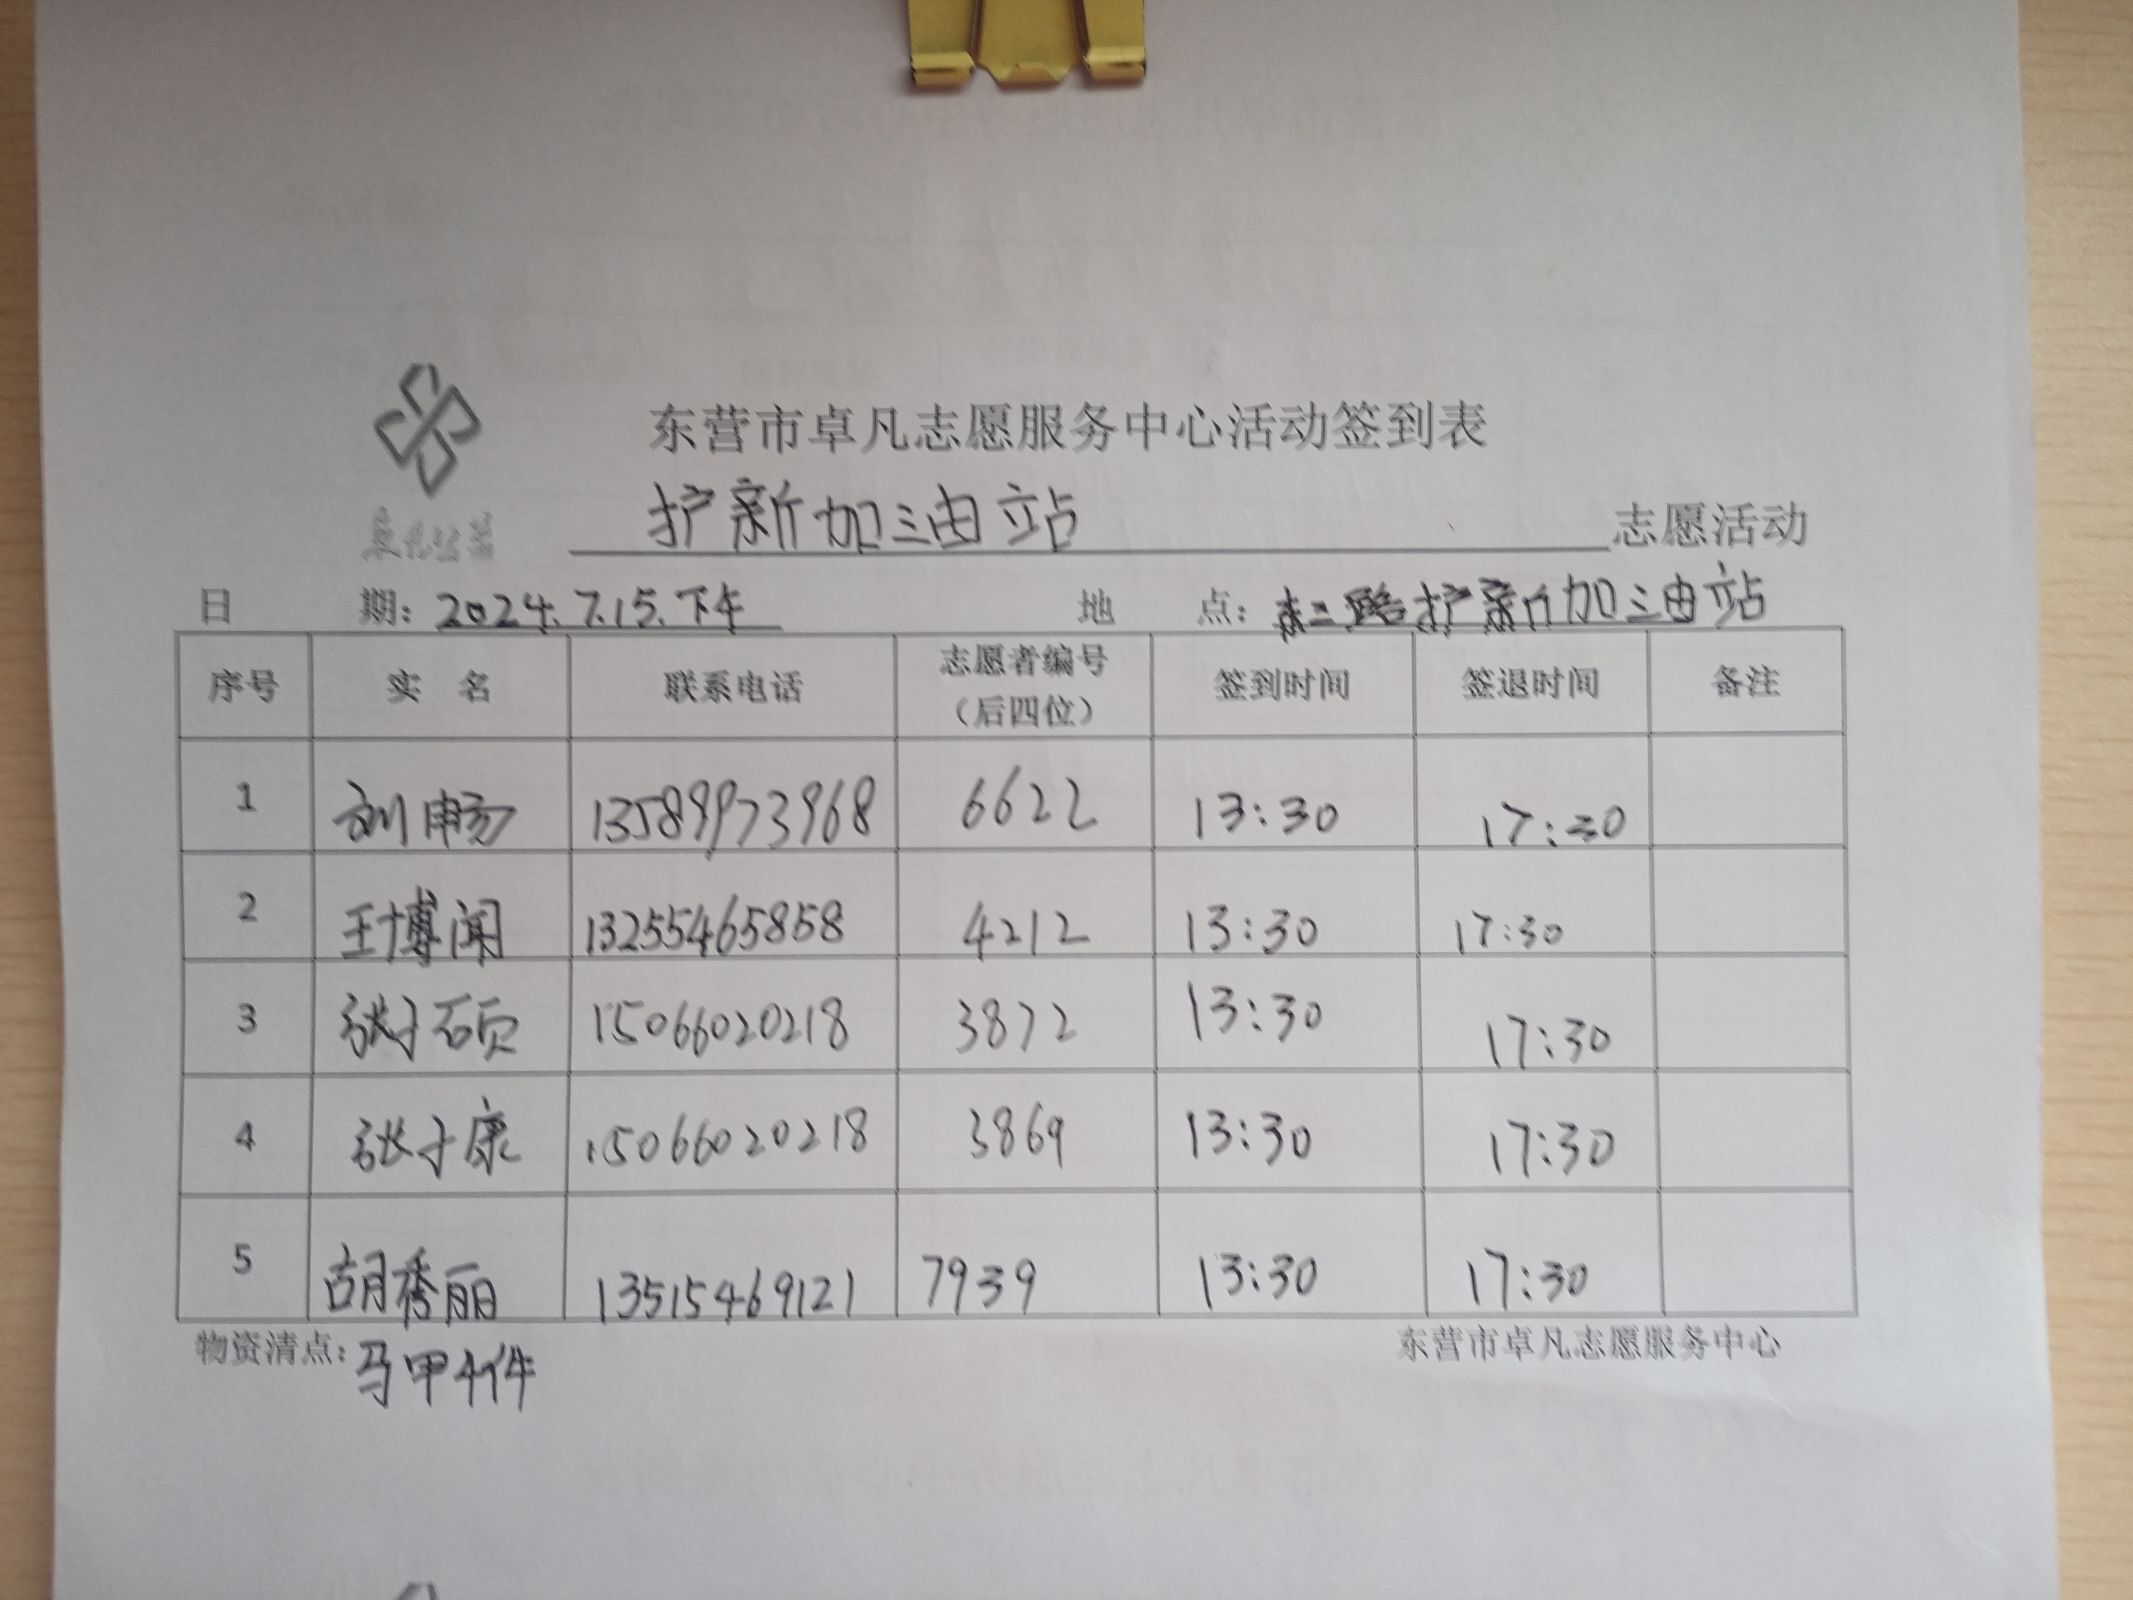 东营市卓凡志愿服务中心活动签到表
卓凡公益
护新加油站 志愿活动
日 期: 2024.7.15.下午 地 点: 东二路护新加油站
序号 实 名 联系电话 志愿者编号（后四位） 签到时间 签退时间 备注
1 刘畅 13589973968 6622 13:30 17:30
2 王博闻 13255465858 4212 13:30 17:30
3 张子硕 15066020218 3872 13:30 17:30
4 张子康 15066020218 3869 13:30 17:30
5 胡秀丽 13515469121 7939 13:30 17:30
物资清点: 马甲4件 东营市卓凡志愿服务中心